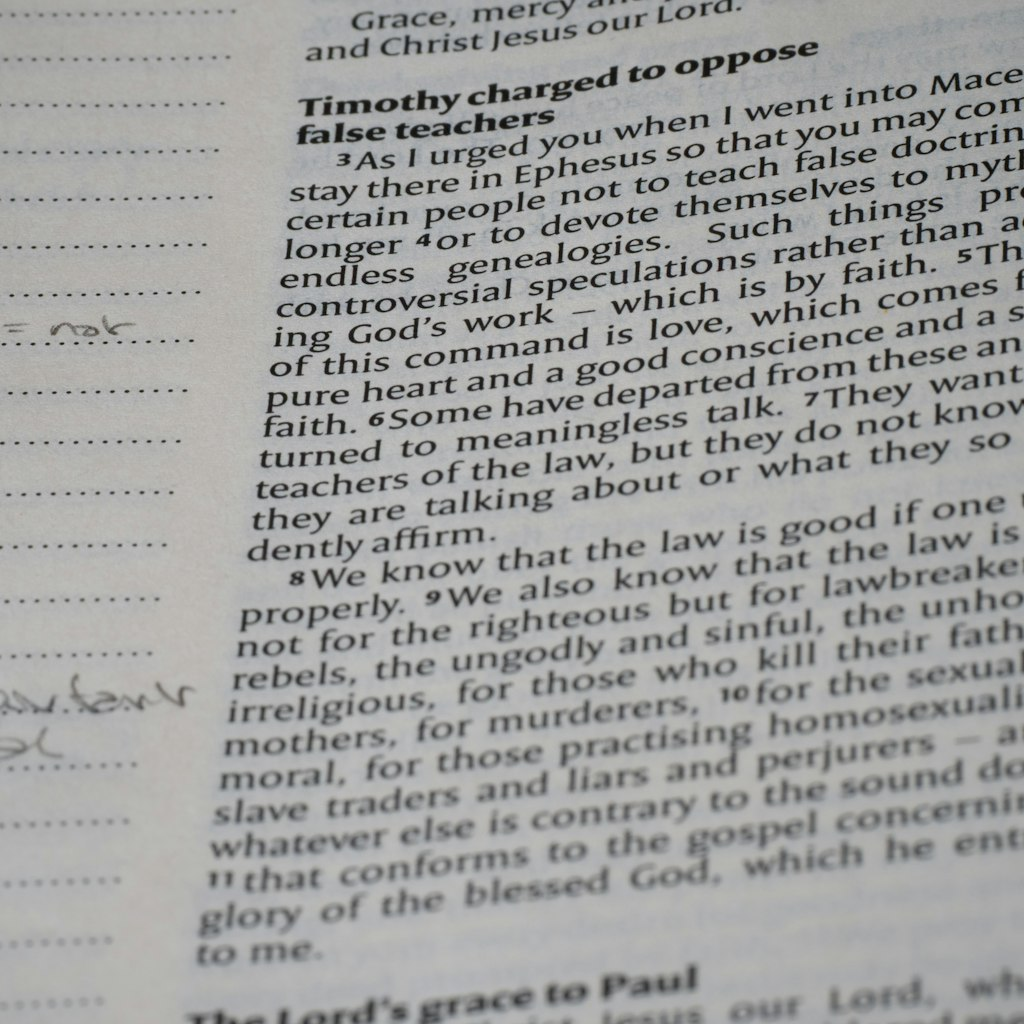 Grace, mercy
and Christ Jesus our Lord.
Timothy charged to oppose
false teachers
3 As I urged you when I went into Mace
stay there in Ephesus so that you may com
certain people not to teach false doctrin
longer 4 or to devote themselves to myth
endless genealogies. Such things pro
controversial speculations rather than a
ing God's work – which is by faith. 5 Th
of this command is love, which comes f
pure heart and a good conscience and a s
faith. 6 Some have departed from these an
turned to meaningless talk. 7 They want
teachers of the law, but they do not know
they are talking about or what they so
dently affirm.
8 We know that the law is good if one
properly. 9 We also know that the law is
not for the righteous but for lawbreake
rebels, the ungodly and sinful, the unho
irreligious, for those who kill their fath
mothers, for murderers, 10 for the sexual
moral, for those practising homosexuali
slave traders and liars and perjurers – a
whatever else is contrary to the sound do
11 that conforms to the gospel concernin
glory of the blessed God, which he ent
to me.
The Lord's grace to Paul
Jesus our Lord, wh
= not